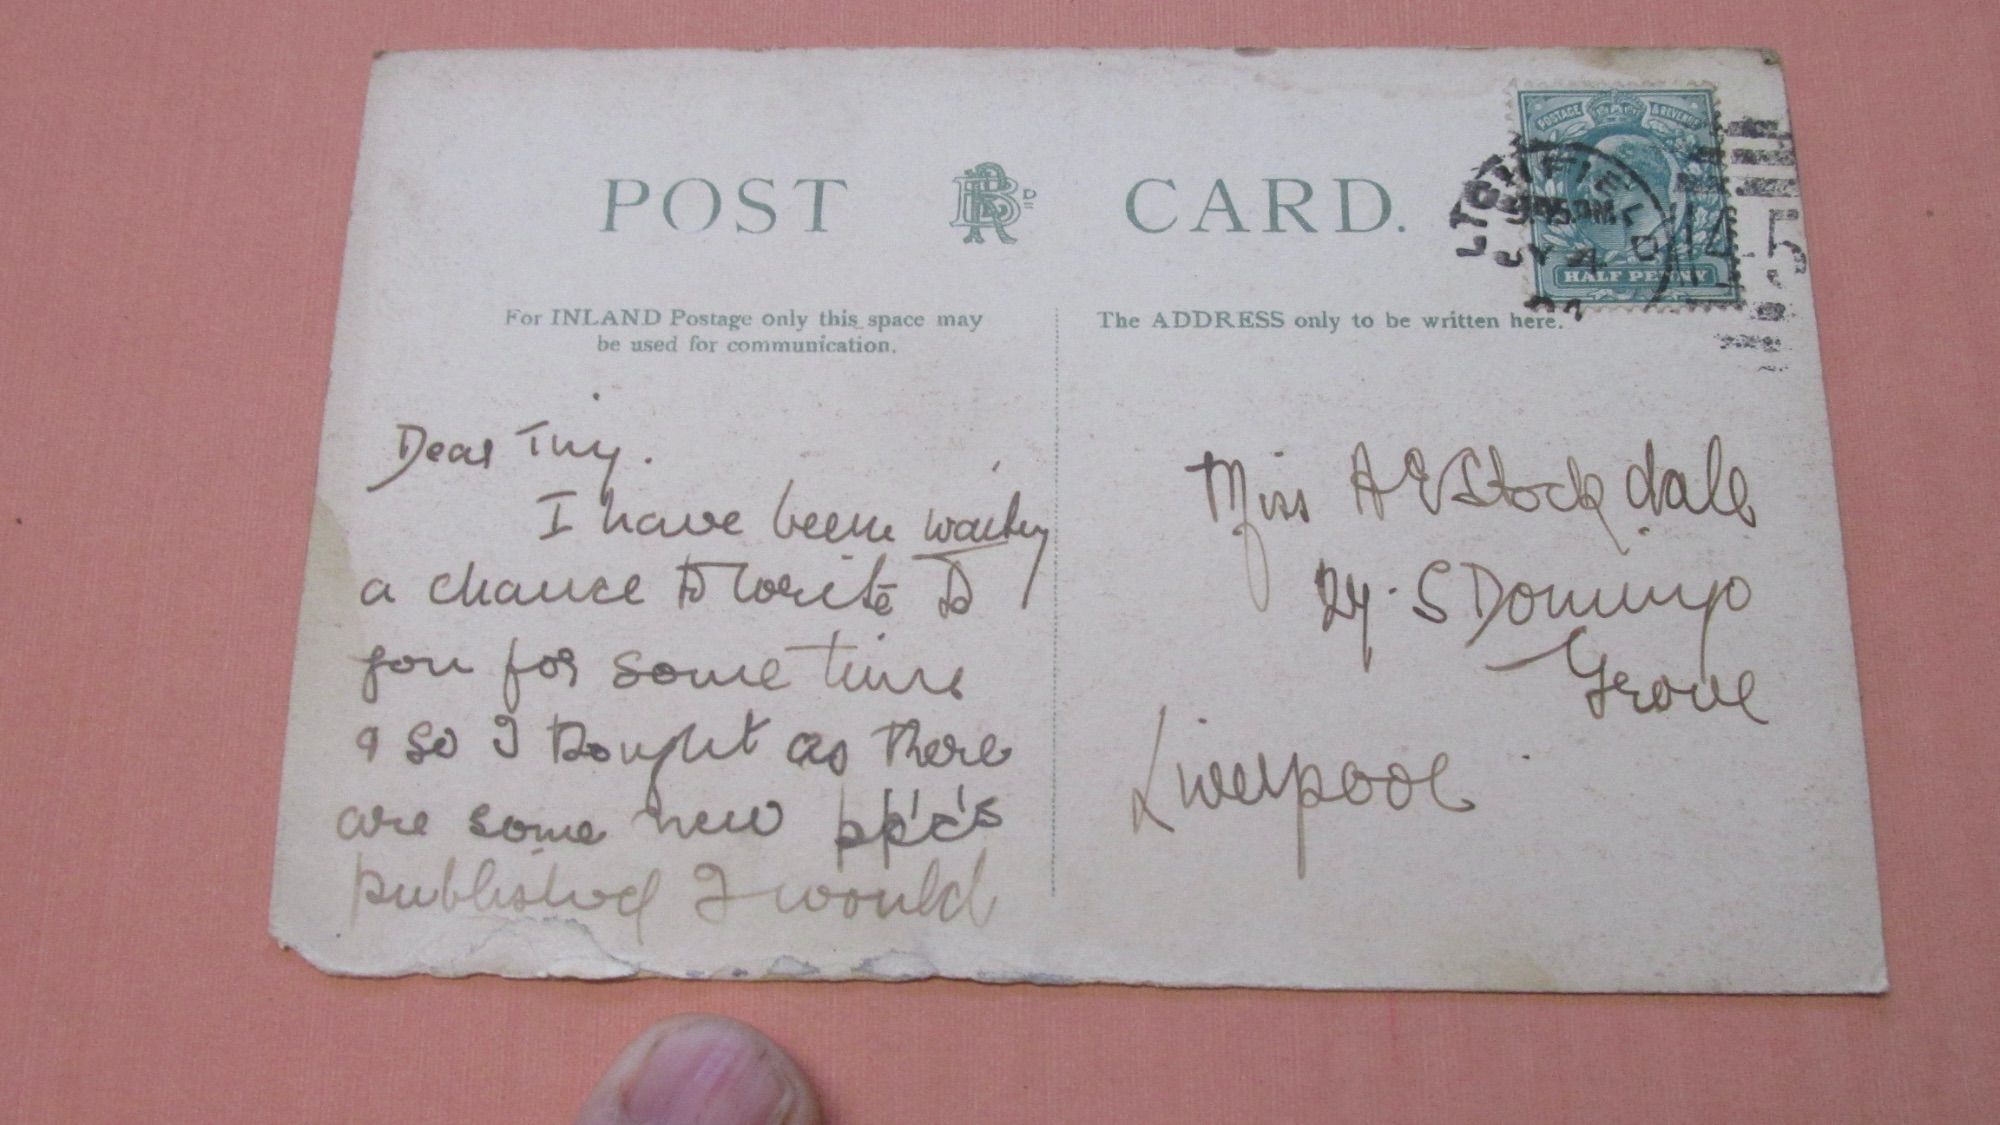 POST CARD.
POSTAGE & REVENUE
HALF PENNY
LICHFIELD
JY 4
145
For INLAND Postage only this space may
be used for communication.
The ADDRESS only to be written here.
Dear Tiny.
I have been waiting
a chance to write to
you for some time
& so I thought as there
are some new pp'c's
published I would
Miss A E Stockdale
S Domingo
Grove
Liverpool